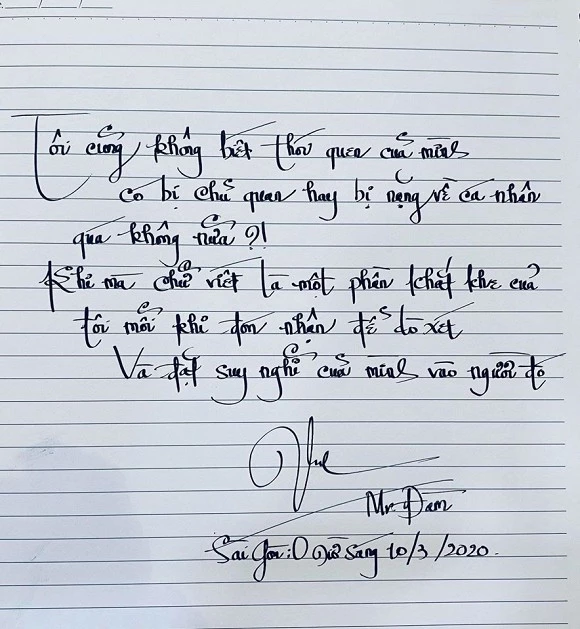 Tôi cũng không biết thói quen của mình
có bị chủ quan hay bị nặng về cá nhân
quá không nữa ?!
Khi mà chữ viết là một phần khắt khe của
tôi mỗi khi đón nhận để dò xét
Và đặt suy nghĩ của mình vào người đó
Mr. Đam
Sài Gòn: 0 giờ sáng 10/3/2020.